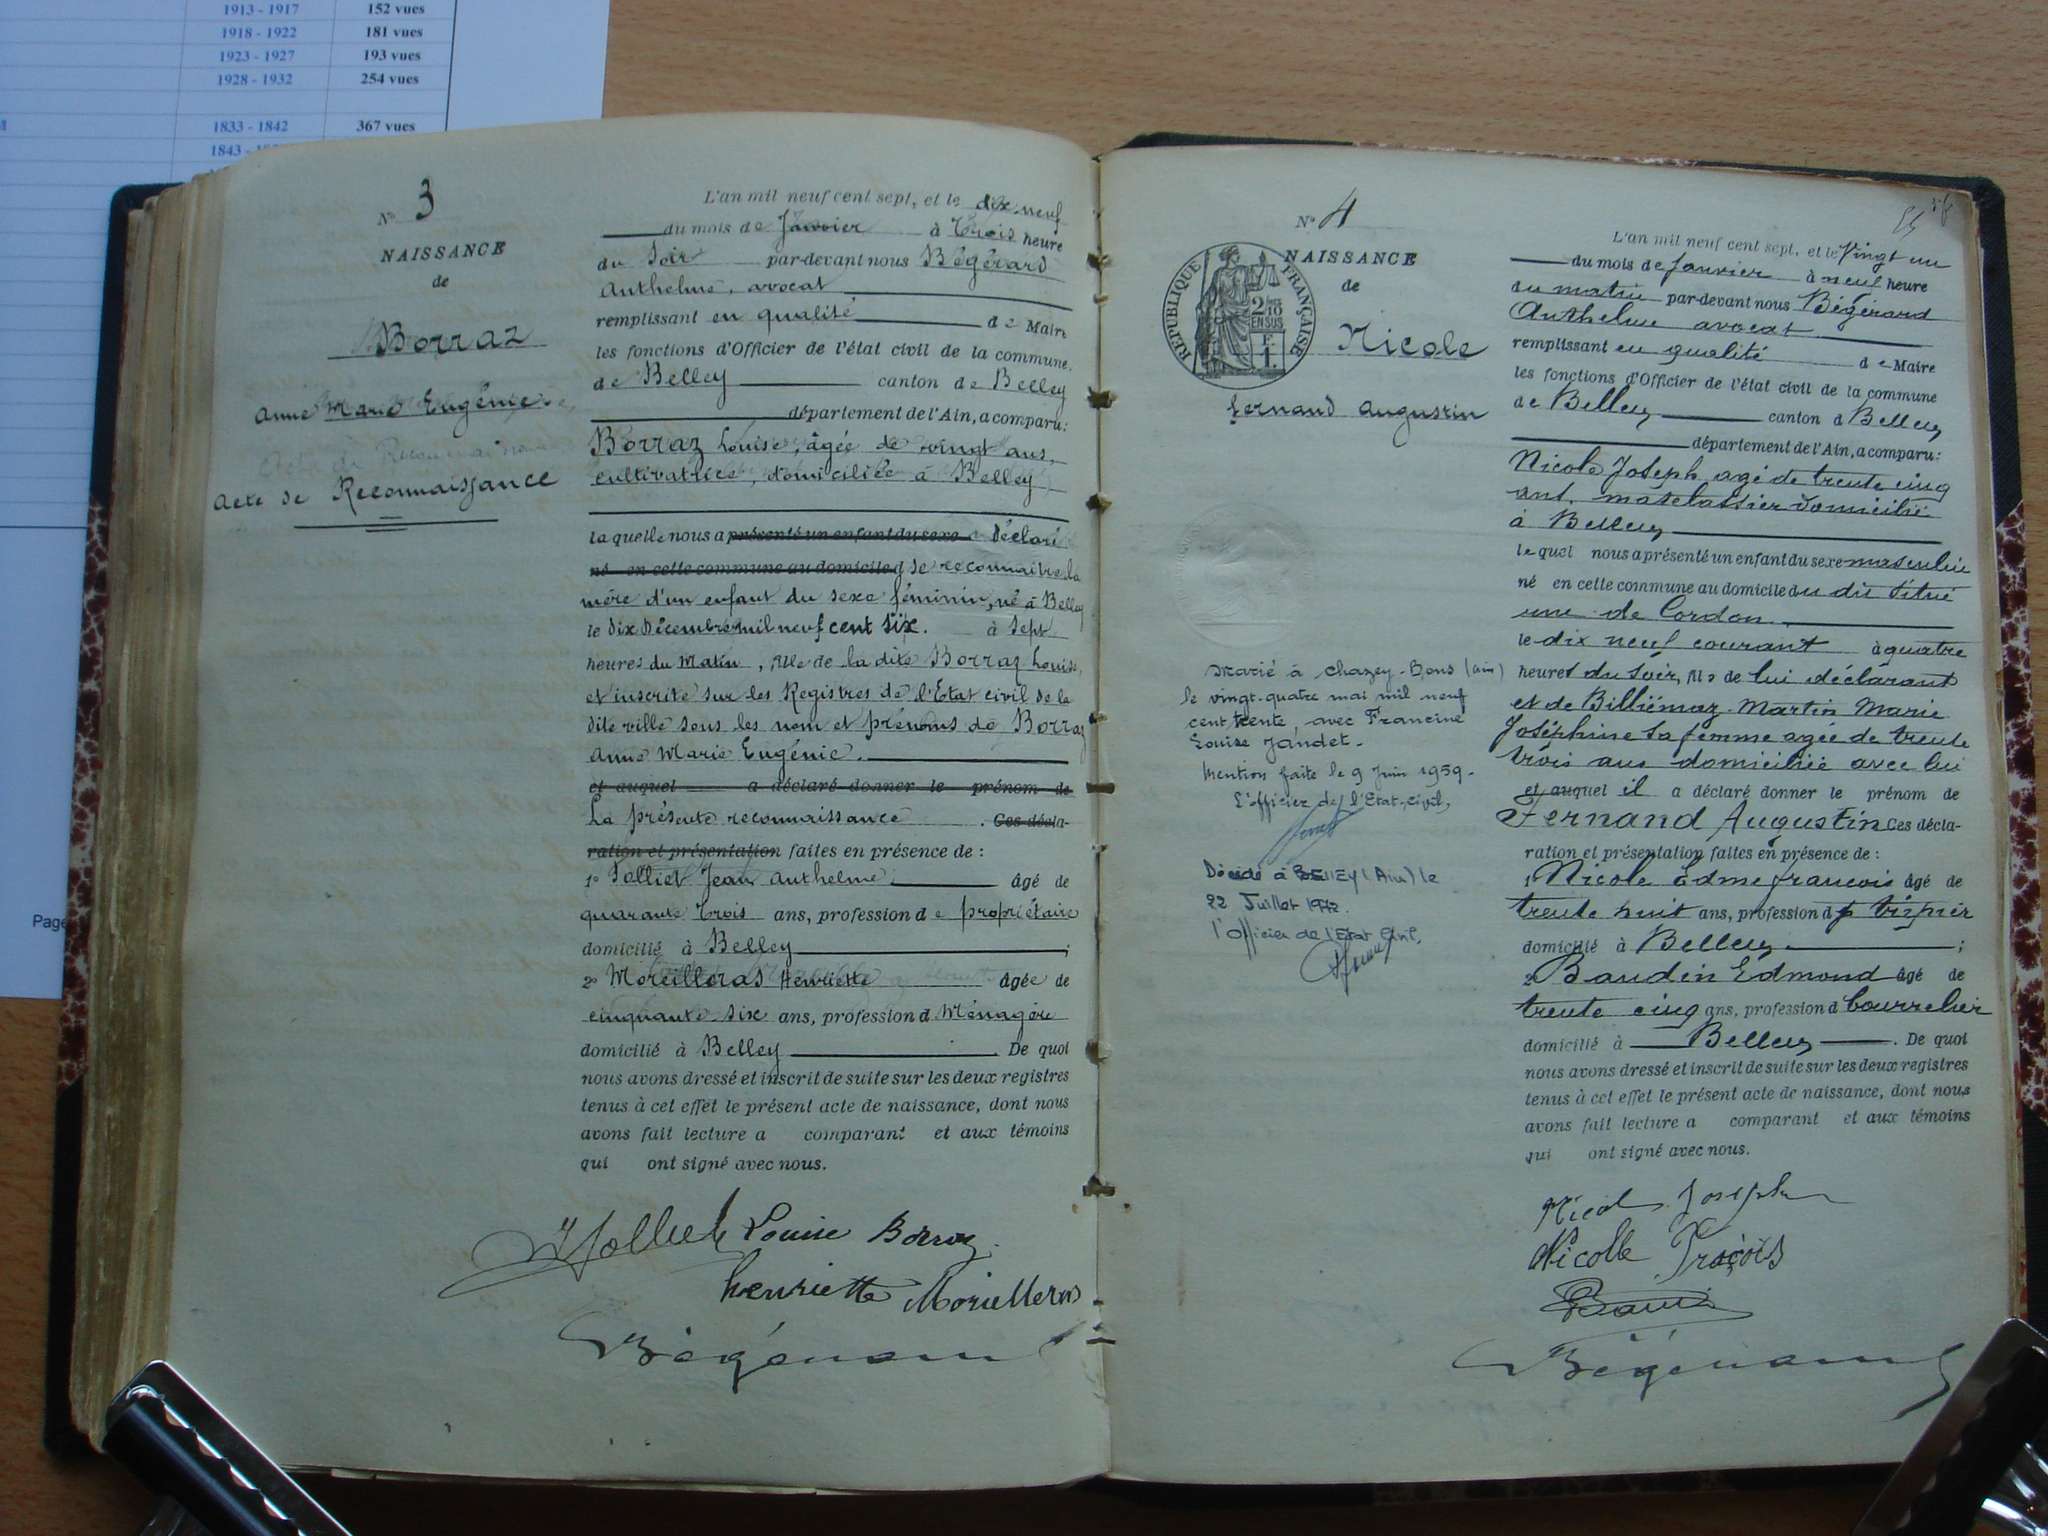 1913 - 1917 152 vues
1918 - 1922 181 vues
1923 - 1927 193 vues
1928 - 1932 254 vues
1833 - 1842 367 vues
1843 -
Page
N° 3
NAISSANCE
de
Borraz
Anne Marie Eugénie
Acte de Reconnaissance
L'an mil neuf cent sept, et le dix neuf
du mois de Janvier à Trois heure
du Soir par-devant nous Bégérard
Anthelme, avocat
remplissant en qualité de Maire
les fonctions d'Officier de l'état civil de la commune
de Belley canton de Belley
département de l'Ain, a comparu:
Borraz Louise, âgée de vingt ans,
cultivatrice, domiciliée à Belley
laquelle nous a présenté un enfant du sexe déclaré
né en cette commune au domicile d se reconnaitre la
mère d'un enfant du sexe féminin, né à Belley
le dix Décembre mil neuf cent six. à Sept
heures du Matin, fille de la dite Borraz Louise,
et inscrite sur les Registres de l'Etat civil de la
dite ville sous les nom et prénoms de Borraz
Anne Marie Eugénie.
et auquel a déclaré donner le prénom de
La présente reconnaissance . Ces décla-
ration et présentation faites en présence de :
1° Jolliet Jean Anthelme âgé de
quarante trois ans, profession de propriétaire
domicilié à Belley ;
2° Moreilleras Henriette âgée de
cinquante six ans, profession d Ménagère
domicilié à Belley . De quoi
nous avons dressé et inscrit de suite sur les deux registres
tenus à cet effet le présent acte de naissance, dont nous
avons fait lecture a comparant et aux témoins
qui ont signé avec nous.
Jolliet Louise Borraz
henriette Morielleras
Bégérard
N° 4
NAISSANCE
de
RÉPUBLIQUE FRANÇAISE
2/10
EN SUS
F.
1.
Nicole
Fernand Augustin
Marié à Chazey-Bons (Ain)
le vingt-quatre mai mil neuf
cent trente, avec Francine
Louise Jandet.
Mention faite le 9 Juin 1959.
L'officier de l'Etat-civil,
Décédé à BELLEY (Ain) le
22 Juillet 1972.
l'Officier de l'Etat Civil,
L'an mil neuf cent sept, et le Vingt un
du mois de Janvier à neuf heure
du matin par-devant nous Bégérard
Anthelme avocat
remplissant en qualité de Maire
les fonctions d'Officier de l'état civil de la commune
de Belley canton d Belley
département de l'Ain, a comparu:
Nicole Joseph agé de trente cinq
ans, matelassier domicilié
à Belley
lequel nous a présenté un enfant du sexe masculin
né en cette commune au domicile du dit situé
rue de Cordon
le dix neuf courant à quatre
heures du soir, fils de lui déclarant
et de Billiémaz-Martin Marie
Joséphine sa femme agée de trente
trois ans domiciliée avec lui
et auquel il a déclaré donner le prénom de
Fernand Augustin Ces décla-
ration et présentation faites en présence de :
1 Nicole Edme francois âgé de
trente huit ans, profession d
domicilié à Belley ;
2 Baudin Edmond âgé de
trente cinq ans, profession d bourrelier
domicilié à Belley . De quoi
nous avons dressé et inscrit de suite sur les deux registres
tenus à cet effet le présent acte de naissance, dont nous
avons fait lecture a comparant et aux témoins
qui ont signé avec nous.
Nicol Joseph
Nicolle
Bégérard